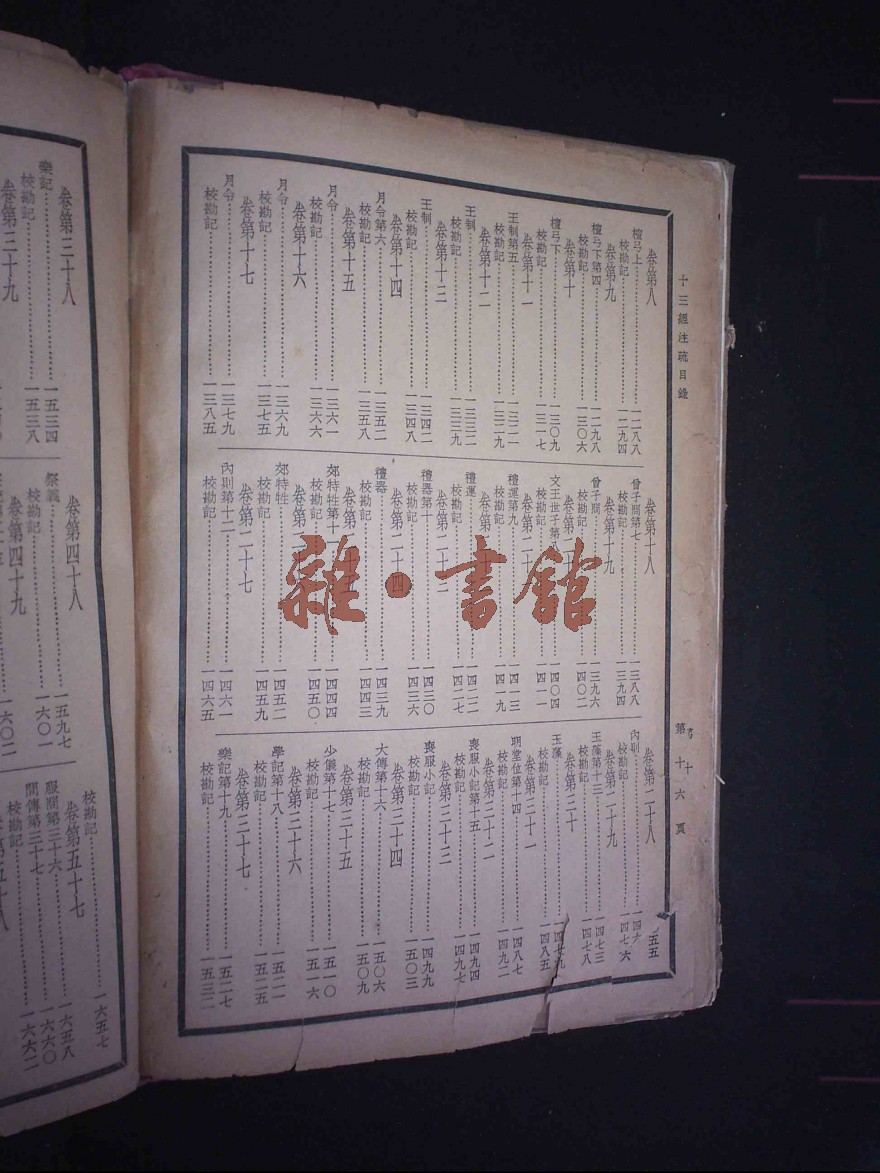 十三經注疏目錄
第十六頁
卷第八
檀弓上……一二八八
校勘記……一二九四
卷第九
檀弓下第四……一二九八
校勘記……一三〇六
卷第十
檀弓下……一三〇九
校勘記……一三一七
卷第十一
王制第五……一三二一
校勘記……一三二九
卷第十二
王制……一三三二
校勘記……一三三九
卷第十三
王制……一三四二
校勘記……一三四八
卷第十四
月令第六……一三五二
校勘記……一三五八
卷第十五
月令……一三六一
校勘記……一三六六
卷第十六
月令……一三六九
校勘記……一三七五
卷第十七
月令……一三七九
校勘記……一三八五
卷第十八
曾子問第七……一三八八
校勘記……一三九四
卷第十九
曾子問……一三九六
校勘記……一四〇二
卷第二十
文王世子第八……一四〇四
校勘記……一四一一
卷第二十
禮運第九……一四一三
校勘記……一四一九
卷第二十
禮運……一四二二
校勘記……一四二七
卷第二十三
禮器第十……一四三〇
校勘記……一四三六
卷第二十四
禮器……一四三九
校勘記……一四四三
卷第二十
郊特牲第十一……一四四四
校勘記……一四五〇
卷第二
郊特牲……一四五二
校勘記……一四五九
卷第二十七
內則第十二……一四六一
校勘記……一四六五
卷第二十八
內則……一四六
校勘記……一四七六
卷第二十九
玉藻第十三……一四七三
校勘記……一四七八
卷第三十
玉藻……一四七九
校勘記……一四八五
卷第三十一
明堂位第十四……一四八七
校勘記……一四九二
卷第三十二
喪服小記第十五……一四九四
校勘記……一四九七
卷第三十三
喪服小記……一四九九
校勘記……一五〇三
卷第三十四
大傳第十六……一五〇六
校勘記……一五〇九
卷第三十五
少儀第十七……一五一〇
校勘記……一五一六
卷第三十六
學記第十八……一五二一
校勘記……一五二五
卷第三十七
樂記第十九……一五二七
校勘記……一五三二
卷第三十八
樂記……一五三四
校勘記……一五三八
卷第三十九
卷第四十八
祭義……一五九七
校勘記……一六〇一
卷第四十九
一六〇二
校勘記……一六五七
卷第五十七
服問第三十六……一六五八
間傳第三十七……一六六〇
校勘記……一六六二
雜·書館